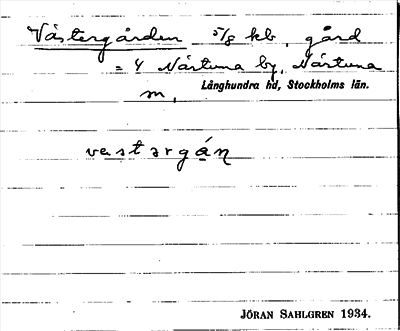 Västergården 5/8 kb. gård
= 4 Närtuna by, Närtuna
Långhundra hd, Stockholms län.
m,
vastərgán
JÖRAN SAHLGREN 1934.